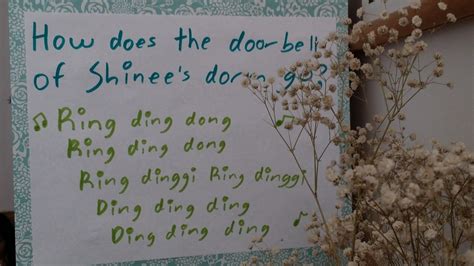 How does the doorbell
of Shinee's dorm go?
♫ Ring ding dong
Ring ding dong
Ring dinggi Ring dinggi
Ding ding ding
Ding ding ding ♪